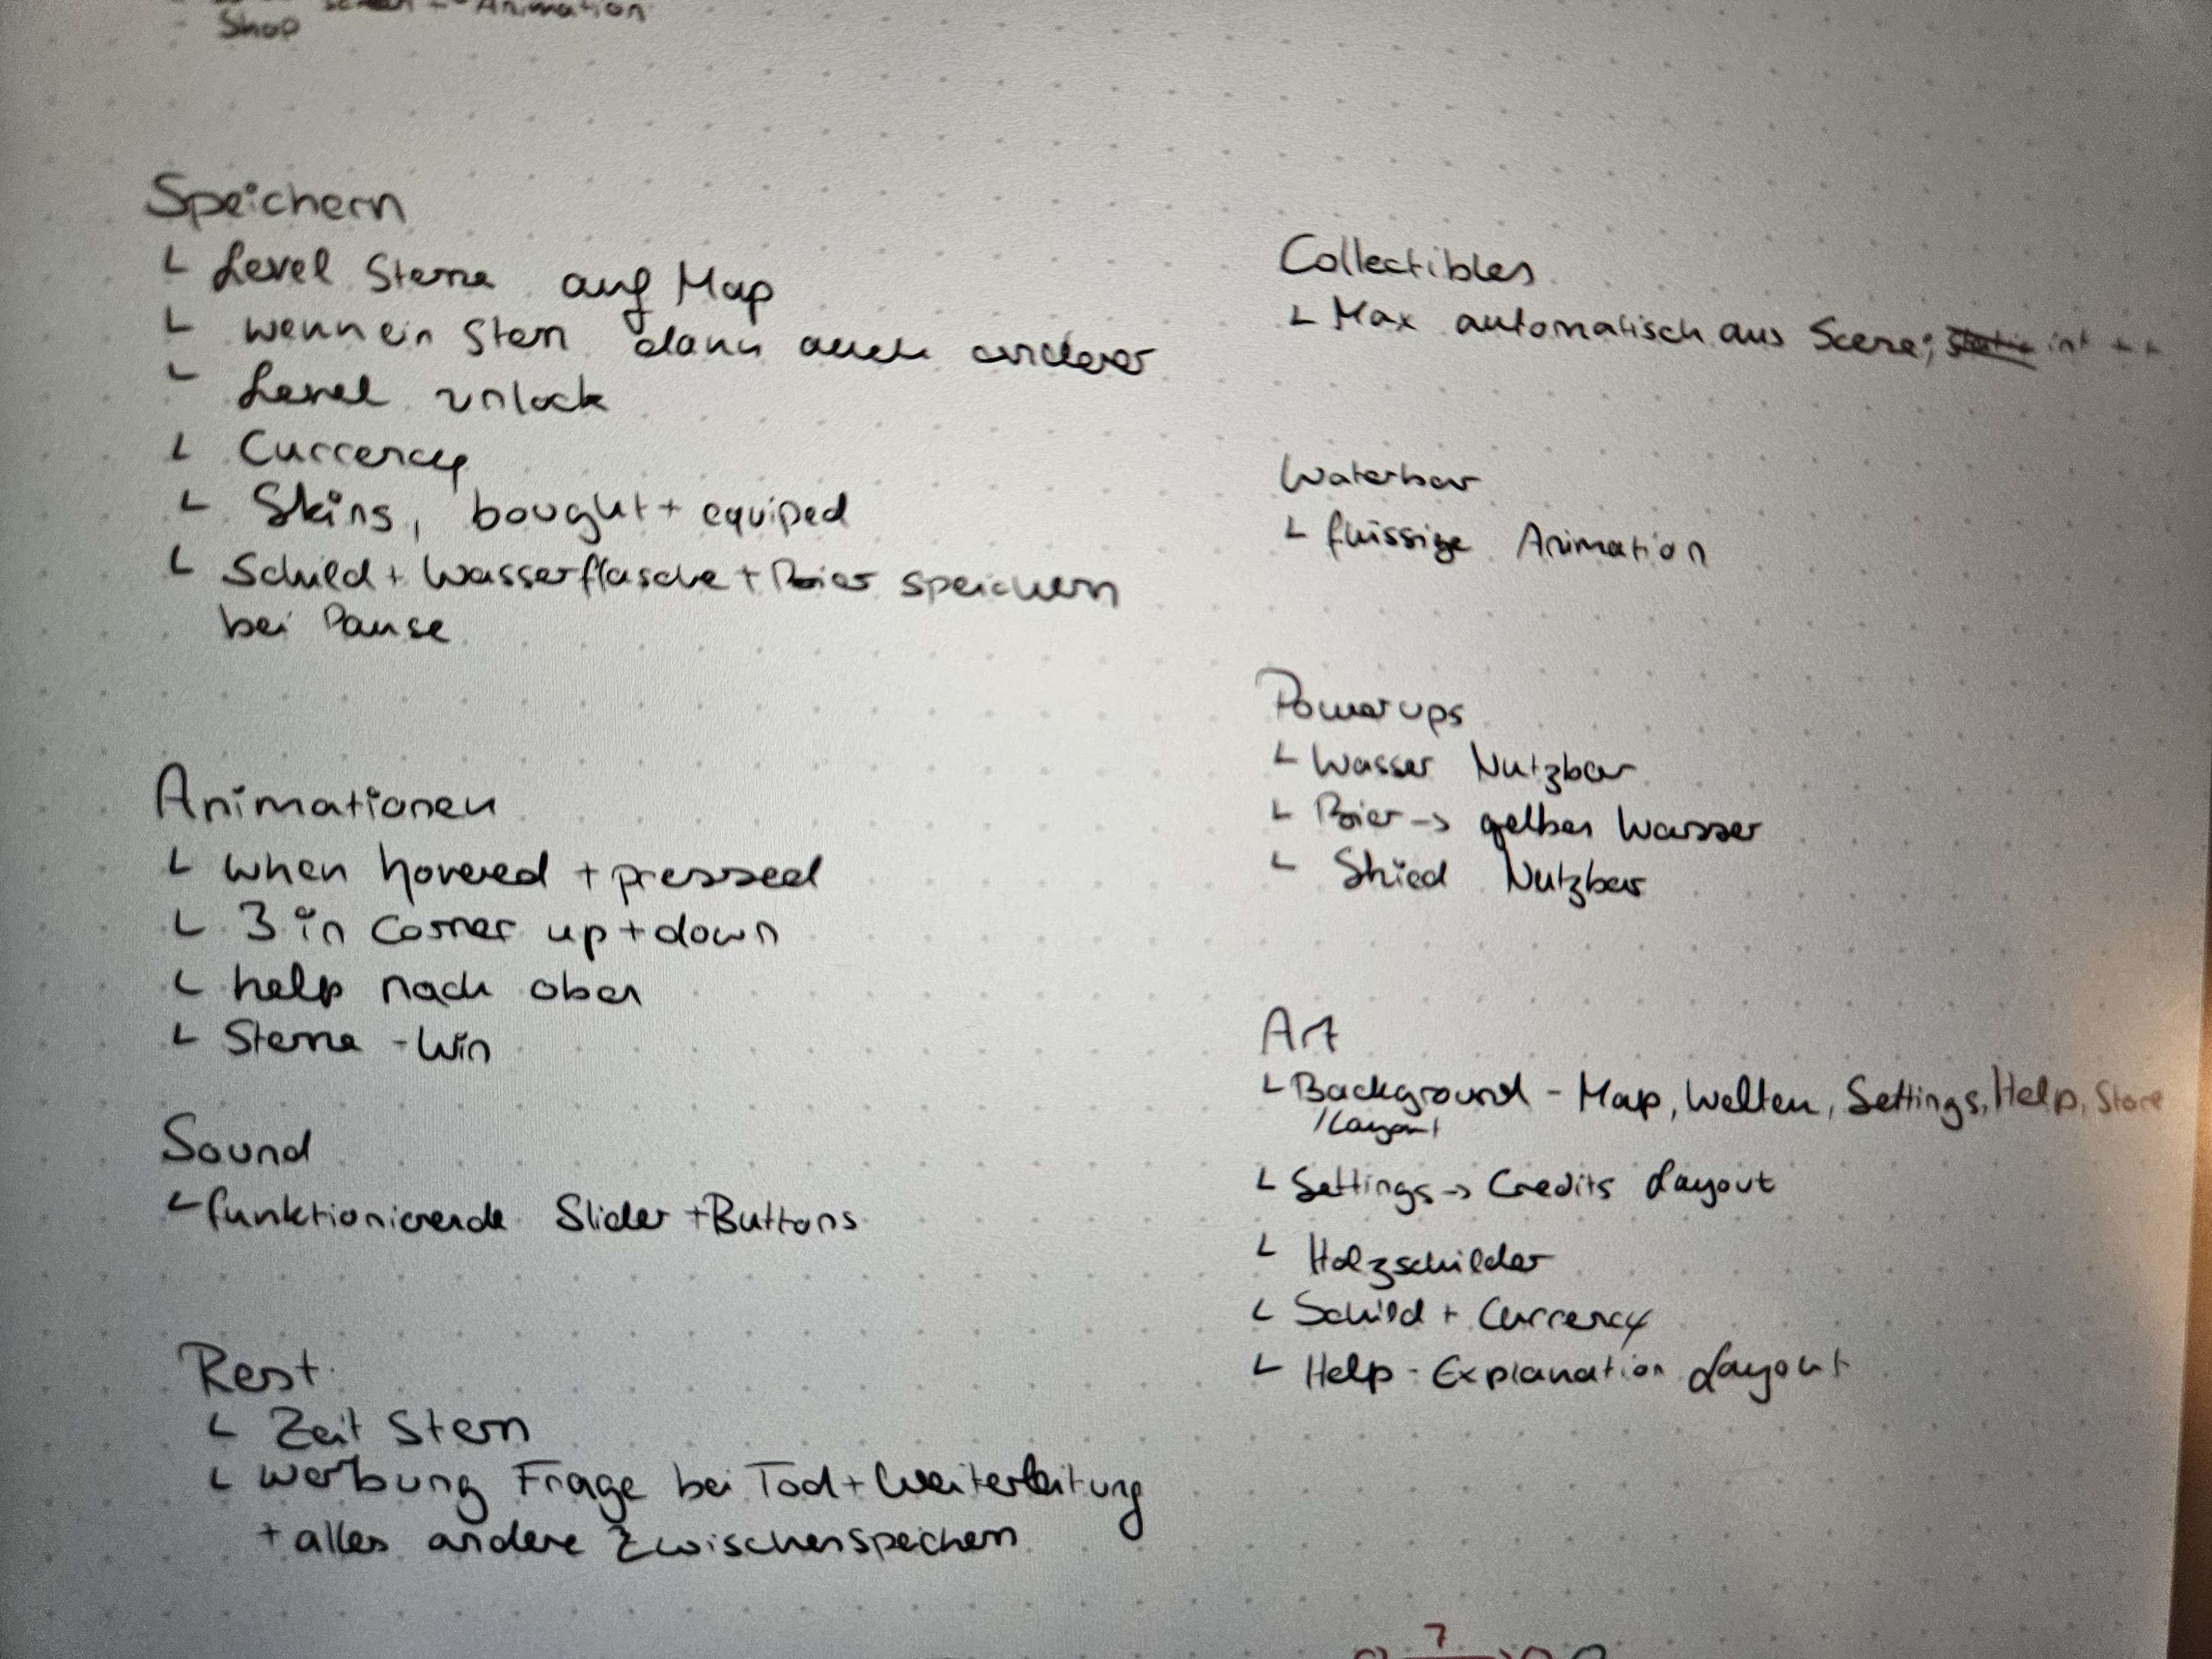 Animation
Shop
Speichern
Level Sterne auf Map
wenn ein Stern dann auch anderer
Level unlock
Currency
Skins, bought + equiped
Schild + Wasserflasche + Bier speichern
bei Pause
Animationen
when hovered + pressed
3 in corner up + down
help nach oben
Sterne - Win
Sound
funktionierende Slider + Buttons
Rest
Zeit Stern
Werbung Frage bei Tod + Weiterleitung
+ alles andere Zwischenspeichern
Collectibles
Max automatisch aus Scene; int ++
Waterbar
flüssige Animation
Powerups
Wasser Nutzbar
Bier -> gelbes Wasser
Shied Nutzbar
Art
Background - Map, Welten, Settings, Help, Store
/Layout
Settings -> Credits Layout
Holzschilder
Schild + Currency
Help - Explanation Layout
7